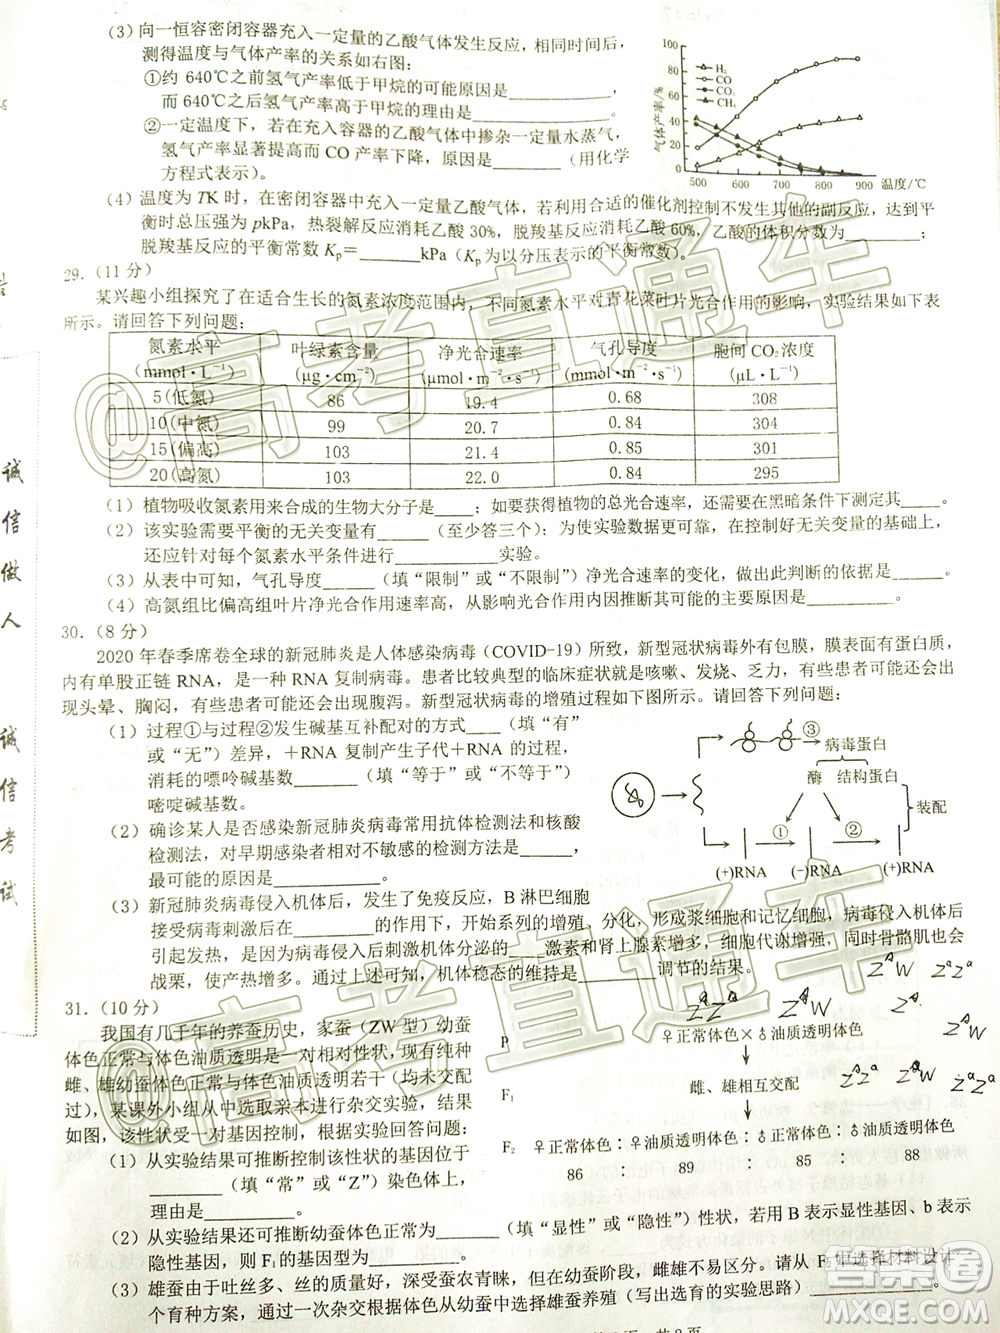 (3) 向一恒容密闭容器充入一定量的乙酸气体发生反应，同样时间
测得温度与气体产率的关系如右图：
①约 640℃之前氢气产率低于甲烷的可能原因是________，
而 640℃之后氢气产率高于甲烷的理由是________。
②一定温度下，若在充入容器的乙酸气体中掺杂一定量水蒸气，
氢气产率显著提高而 CO 产率下降，原因是________（用化学
方程式表示）。
气体产率/%
100
80
60
40
20
0
H₂
CO
CO₂
CH₄
500 600 700 800 900 温度/℃
(4) 温度为 TK 时，在密闭容器中充入一定量乙酸气体，若利用合适的催化剂控制不发生其他的副反应，达到平
衡时总压强为 pkPa，热裂解反应消耗乙酸 30%，脱羧基反应消耗乙酸 60%，乙酸的体积分数为________；
脱羧基反应的平衡常数 Kp＝________kPa（Kp为以分压表示的平衡常数）。
29．（11 分）
某兴趣小组探究了在适合生长的氮素浓度范围内，不同氮素水平对青花菜叶片光合作用的影响，实验结果如下表
所示。请回答下列问题：
氮素水平 (mmol·L⁻¹) 叶绿素含量 (μg·cm⁻²) 净光合速率 (μmol·m⁻²·s⁻¹) 气孔导度 (mmol·m⁻²·s⁻¹) 胞间 CO₂浓度 (μL·L⁻¹)
5(低氮) 86 19.4 0.68 308
10(中氮) 99 20.7 0.84 304
15(偏高) 103 21.4 0.84 302
20(高氮) 103 22.0 0.84 295
(1) 植物吸收氮素用来合成的生物大分子是____；如要获得植物的总光合速率，还需要在黑暗条件下测定其____。
(2) 该实验需要平衡的无关变量有______（至少答三个）；为使实验数据更可靠，在控制好无关变量的基础上，
还应针对每个氮素水平条件进行________实验。
(3) 从表中可知，气孔导度____（填“限制”或“不限制”）净光合速率的变化，做出此判断的依据是______。
(4) 高氮组比偏高组叶片净光合作用速率高，从影响光合作用内因推断其可能的主要原因是________。
30．（8 分）
2020 年春季席卷全球的新冠肺炎是人体感染病毒（COVID-19）所致，新型冠状病毒外有包膜，膜表面有蛋白质，
内有单股正链 RNA，是一种 RNA 复制病毒。患者比较典型的临床症状就是咳嗽、发烧、乏力，有些患者可能还会出
现头晕、胸闷，有些患者可能还会出现腹泻。新型冠状病毒的增殖过程如下图所示。请回答下列问题：
(1) 过程①与过程②发生碱基互补配对的方式____（填“有”
或“无”）差异，＋RNA 复制产生子代＋RNA 的过程，
消耗的嘌呤碱基数______（填“等于”或“不等于”）
嘧啶碱基数。
(2) 确诊某人是否感染新冠肺炎病毒常用抗体检测法和核酸
检测法，对早期感染者相对不敏感的检测方法是______，
最可能的原因是________。
③
病毒蛋白
酶 结构蛋白
① ②
装配
(+)RNA (-)RNA (+)RNA
(3) 新冠肺炎病毒侵入机体后，发生了免疫反应，B 淋巴细胞
接受病毒刺激后在________的作用下，开始系列的增殖、分化，形成浆细胞和记忆细胞，病毒侵入机体会
引起发热，是因为病毒侵入后刺激机体分泌的____激素和肾上腺素增多，细胞代谢增强，同时骨骼肌也会
战栗，使产热增多。以上过程可见，机体稳态的维持是________调节的结果。
31．（10 分）
我国有几千年的养蚕历史，家蚕（ZW 型）幼蚕
体色正常与体色油质透明是一对相对性状，现有纯种
雌、雄幼蚕体色正常与体色油质透明若干（均未交配
过），某课外小组从中选取亲本进行杂交实验，结果
如图，该性状受一对基因控制，根据实验回答问题：
P ♀正常体色×♂油质透明体色
F₁ 雌、雄相互交配
F₂ ♀正常体色：♀油质透明体色：♂正常体色：♂油质透明体色
86 ： 89 ： 85 ： 88
(1) 从实验结果可推断控制该性状的基因位于
______（填“常”或“Z”）染色体上，
理由是________。
(2) 从实验结果还可推断幼蚕体色正常为______（填“显性”或“隐性”）性状，若用 B 表示显性基因、b 表示
隐性基因，则 F₁的基因型为______。
(3) 雄蚕由于吐丝多、丝的质量好，深受蚕农青睐，但幼蚕阶段，雌雄不易区分。请从 F₂中选择材料设计
个育种方案，通过一次杂交根据体色从幼蚕中选择雄蚕养殖（写出选育的实验思路）________。
诚信做人
诚信考试
@高考直通车
@高考直通车
答案圈
MXQE.COM